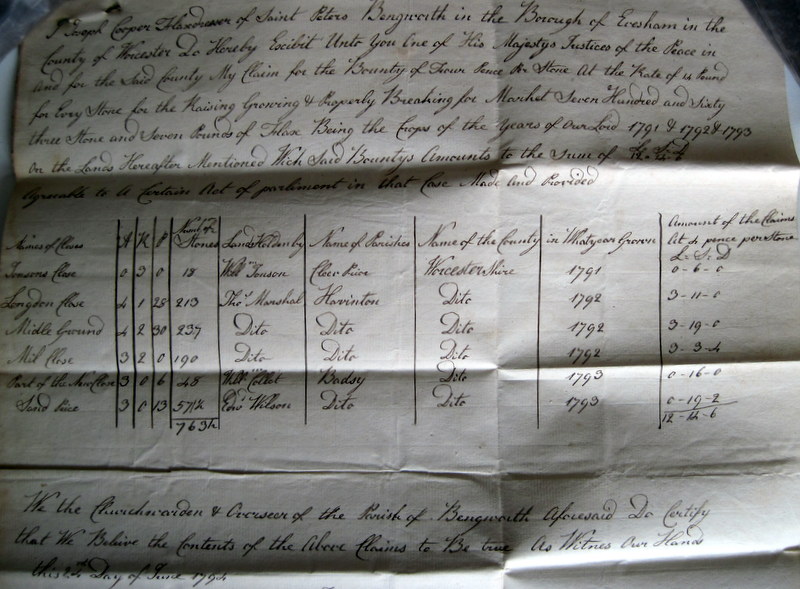 I Joseph Cooper Flaxdresser of Saint Peters Bengworth in the Borough of Evesham in the
County of Worcester Do Hereby Exibit Unto You One of His Majestys Justices of the Peace in
and for the Said County My Claim for the Bounty of Four Pence Pr Stone At the Rate of 14 Pound
for Evry Stone for the Raising Growing & Properly Breaking for Market Seven Hundred and Sixty
three Stone and Seven Pounds of Flax Being the Crops of the Years of Our Lord 1791 & 1792 & 1793
on the Lands Hereafter Mentioned Wich Said Bountys Amounts to the Sume of
Agreable to A Certain Act of parlimont in that Case Made And Provided
Names of Closes A R P Numbr of Stones Lands Holden by Name of Parishes Name of the County in What year Grown Amount of the Claims At 4 pence per Stone
L S D
Tonsons Close 0 3 0 18 Will Tonson Cleve Prior Worcester Shire 1791 0-6-0
Longdon Close 4 1 28 213 Thos Marshal Havinton Dito 1792 3-11-0
Middle Ground 4 2 30 237 Dito Dito Dito 1792 3-19-0
Mil Close 3 2 0 190 Dito Dito Dito 1792 3-3-4
Part of the New Close 3 0 6 48 Willm Collet Badsey Dito 1793 0-16-0
Sand 3 0 13 57½ Edwd Wilson Dito Dito 1793 0-19-2
763½ 12-14-6
We the Churchwarden & Overseer of the Parish of Bengworth Aforesaid Do Certify
that We Belive the Contents of the Above Claims to Be true As Witnes Our Hands
this Day of June 1794